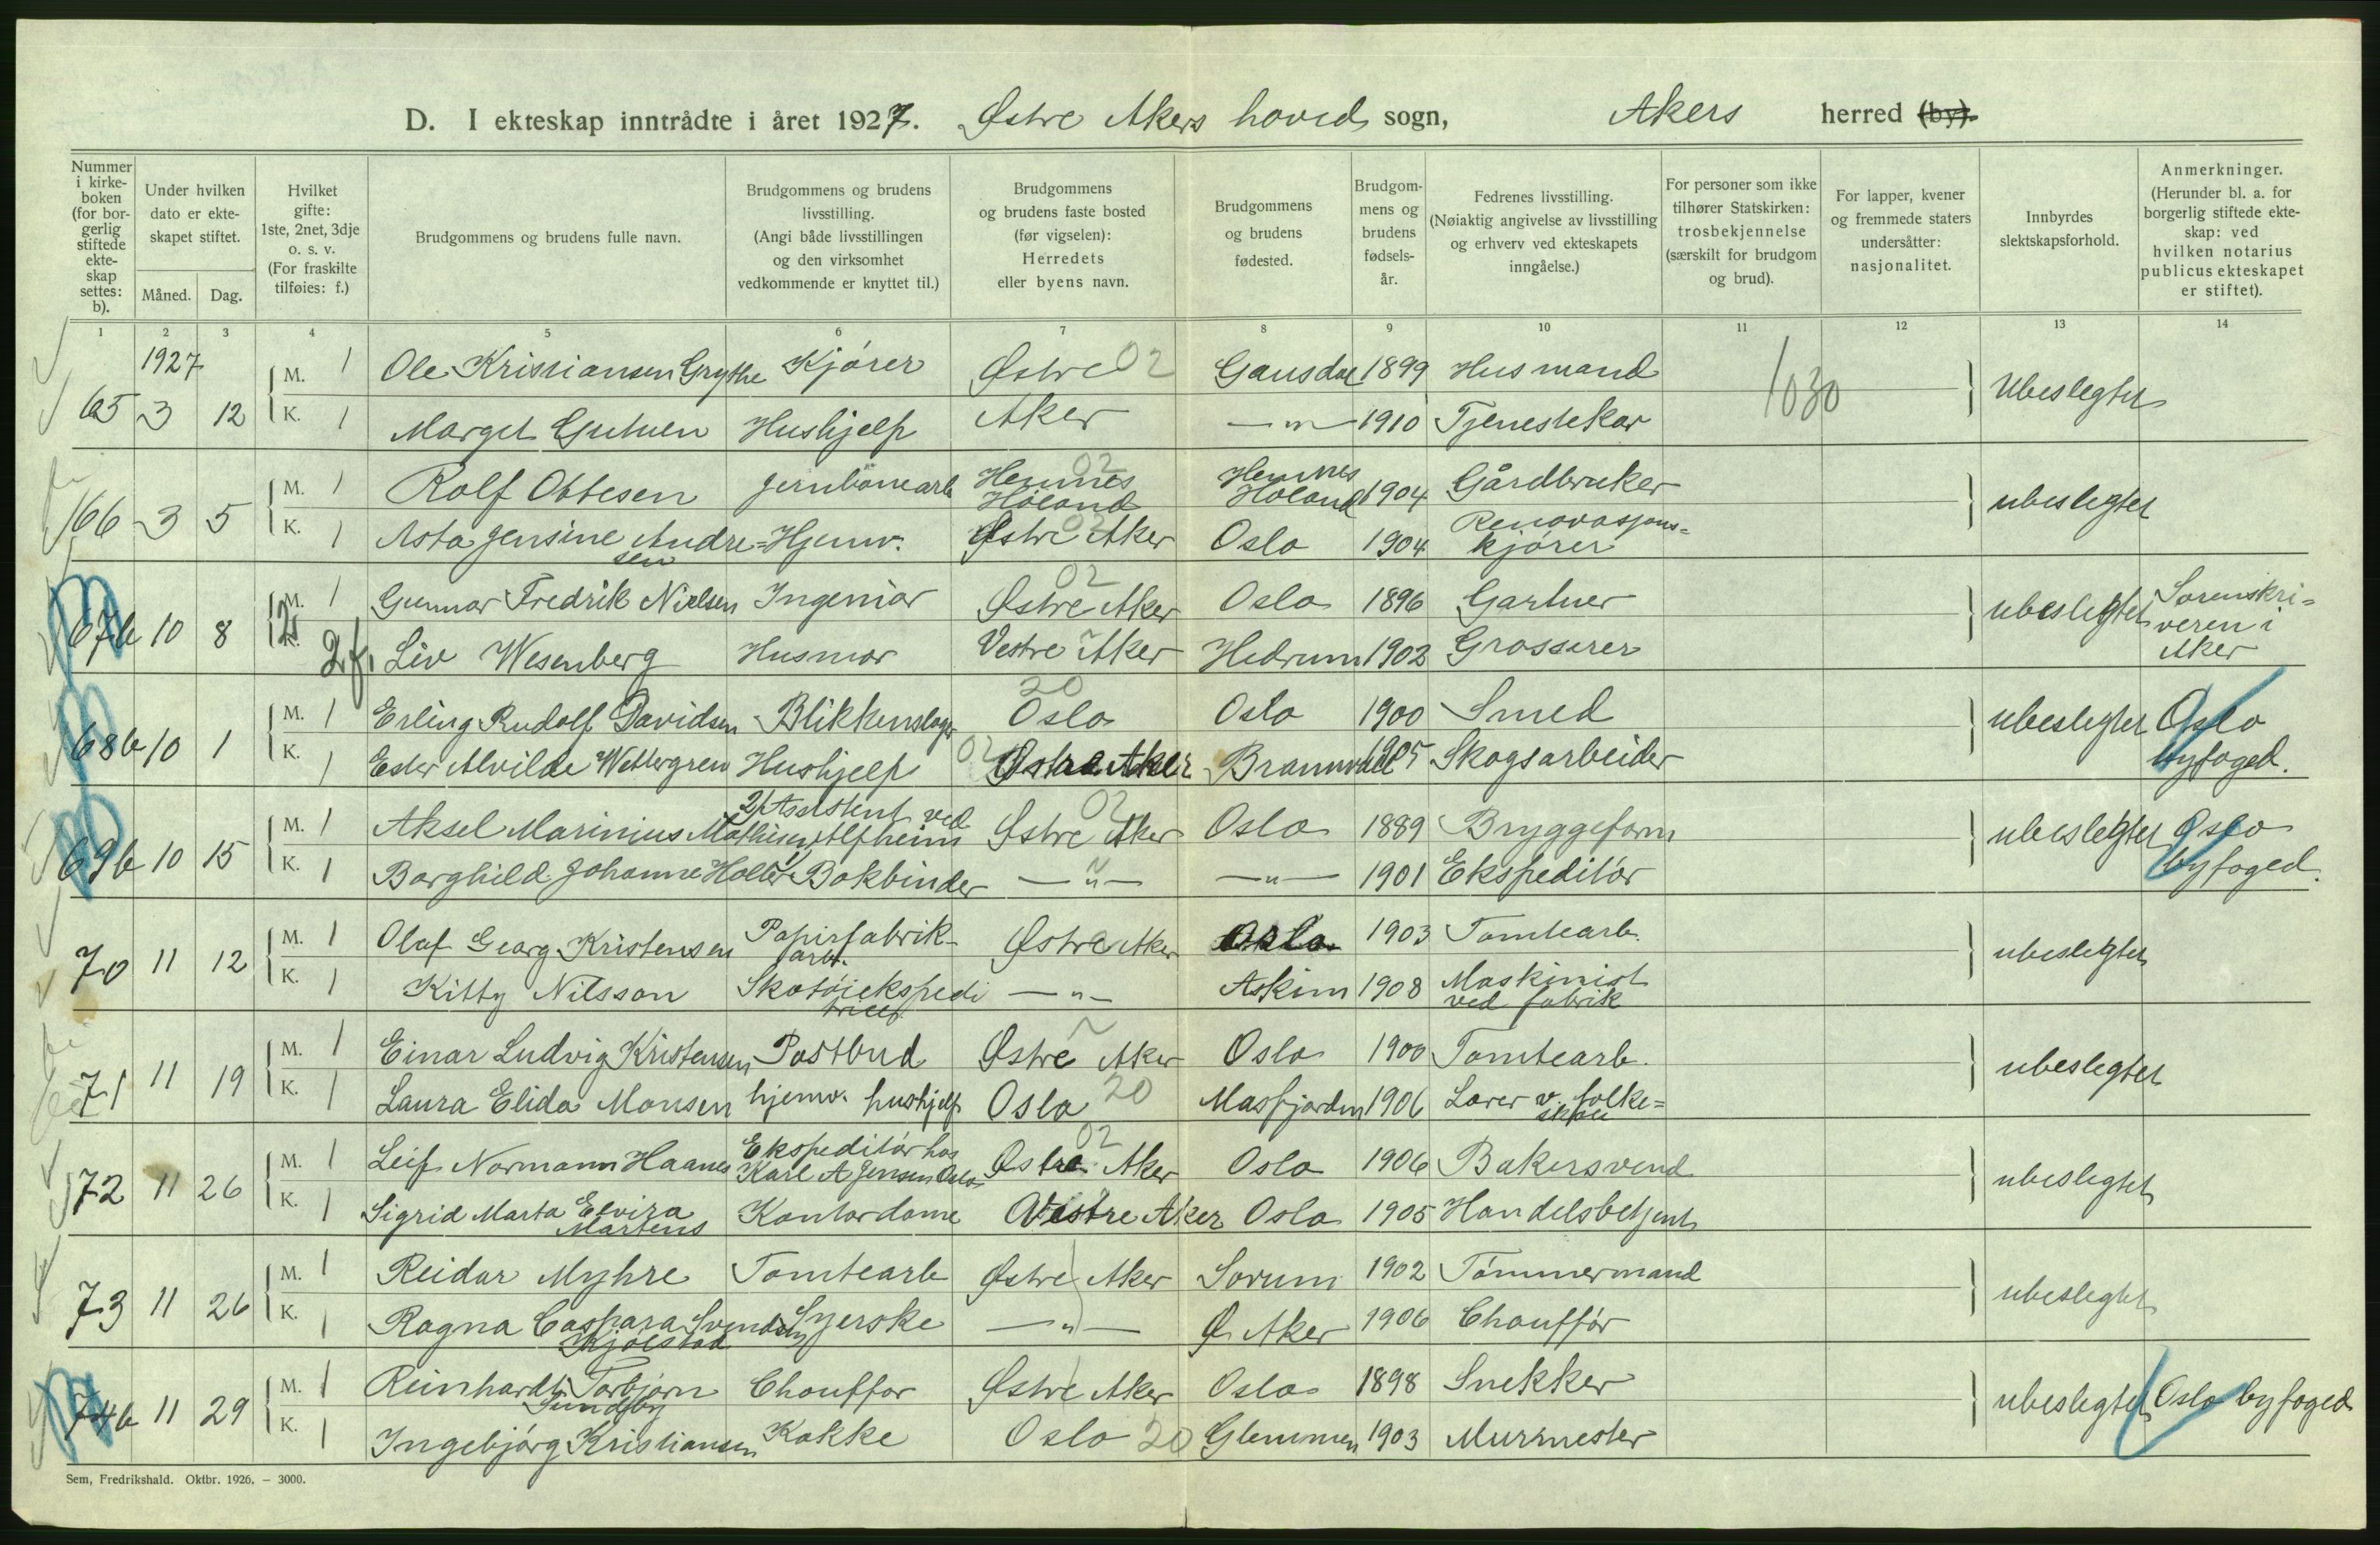 D. I ekteskap inntrådte i året 1927. Østre Akers hoved sogn, Akers herred (by).
Nummer i kirkeboken (for borgerlig stiftede ekteskap settes: b).
Under hvilken dato er ekteskapet stiftet.
Måned. Dag.
Hvilket gifte: 1ste, 2net, 3dje o. s. v. (For fraskilte tilføies: f.)
Brudgommens og brudens fulle navn.
Brudgommens og brudens livsstilling. (Angi både livsstillingen og den virksomhet vedkommende er knyttet til.)
Brudgommens og brudens faste bosted (før vigselen): Herredets eller byens navn.
Brudgommens og brudens fødested.
Brudgommens og brudens fødselsår.
Fedrenes livsstilling. (Nøiaktig angivelse av livsstilling og erhverv ved ekteskapets inngåelse.)
For personer som ikke tilhører Statskirken: trosbekjennelse (særskilt for brudgom og brud).
For lapper, kvener og fremmede staters undersåtter: nasjonalitet.
Innbyrdes slektskapsforhold.
Anmerkninger. (Herunder bl. a. for borgerlig stiftede ekteskap: ved hvilken notarius publicus ekteskapet er stiftet).
1 2 3 4 5 6 7 8 9 10 11 12 13 14
1927
M. 1 Ole Kristiansen Grythe Kjórer Østre 02 Gausdal 1899 Husmand 1030
65 3 12 K. 1 Marget Gutuen Hushjelp Aker —"— 1910 Tjenestekar Ubeslegtet
M. 1 Rolf Ottesen Jernbanearb Hemnes Høland 02 Hemnes Høland 1904 Gårdbruker
66 3 5 K. 1 Asta Jensine Andre=sen Hjemv. Østre Aker 02 Oslo 1904 Renovasjons=kjórer ubeslegtet
M. 1 Gunnar Fredrik Nielsen Ingeniør Østre Aker 02 Oslo 1896 Gartner
67b 10 8 K. 2.f. Liv Wesenberg Husmor Vestre Aker Hedrum 1902 Grosserer ubeslegtet Sorenskri=veren i Aker
M. 1 Erling Rudolf Davidsen Blikkenslager Oslo 20 Oslo 1900 Smed
68b 10 1 K. 1 Ester Alvilde Wettergren Hushjelp 02 Østre Aker Brannvall 1905 Skogsarbeider ubeslegtet Oslo byfoged.
M. 1 Aksel Marinius Mathisen 2) Assistent ved Alfheim Østre Aker 02 Oslo 1889 Bryggeform
69b 10 15 K. 1 Borghild Johanne Holter Bokbinder —"— —"— 1901 Ekspeditór ubeslegtet Oslo byfoged.
M. 1 Olaf Georg Kristensen Papirfabrik-arb. Østre Aker Oslo 1903 Tomtearb.
70 11 12 K. 1 Kitty Nilsson Skotóiekspedi —"— Askim 1908 Maskinist ved fabrik ubeslegtet
M. 1 Einar Ludvig Kristensen Postbud Østre Aker Oslo 1900 Tomtearb.
71 11 19 K. 1 Laura Elida Monsen hjemv. hushjelp Oslo 20 Masfjorden 1906 Lærer v. folke=skole ubeslegtet
M. 1 Leif Normann Haanes Ekspeditór hos Karl A Jensen Oslo Østre Aker 02 Oslo 1906 Bakersvend
72 11 26 K. 1 Sigrid Marta Elvira Martens Kontordame Vestre Aker Oslo 1905 Handelsbetjent ubeslegtet
M. 1 Reidar Myhre Tomtearb Østre Aker Sorum 1902 Tómmermand
73 11 26 K. 1 Ragna Caspara Svendsby Kjølstad Syerske —"— Ø. Aker 1906 Chauffór ubeslegtet
M. 1 Reinhardt Torbjørn Sundby Chauffor Østre Aker Oslo 1898 Snekker
74b 11 29 K. 1 Ingebjórg Kristiansen Kokke Oslo 20 Glemmen 1903 Murmester ubeslegtet Oslo byfoged
Sem, Fredrikshald. Oktbr. 1926. – 3000.